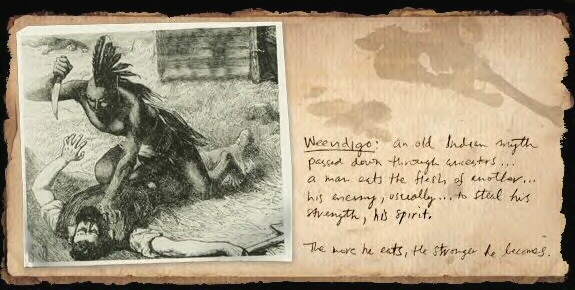 Weendigo: an old Indian myth
passed down through ancestors...
a man eats the flesh of another...
his enemy, usually... to steal his
strength, his spirit.
The more he eats, the stronger he becomes.